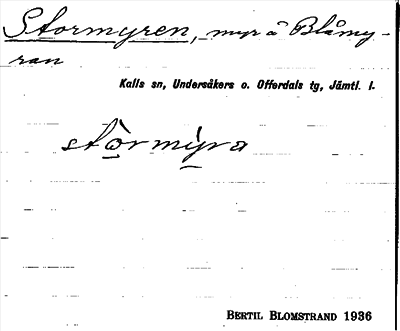 Stormyren, myr å Blåmy-
ran
Kalls sn, Undersåkers o. Offerdals tg, Jämtl. l.
stòrmỳra
BERTIL BLOMSTRAND 1936